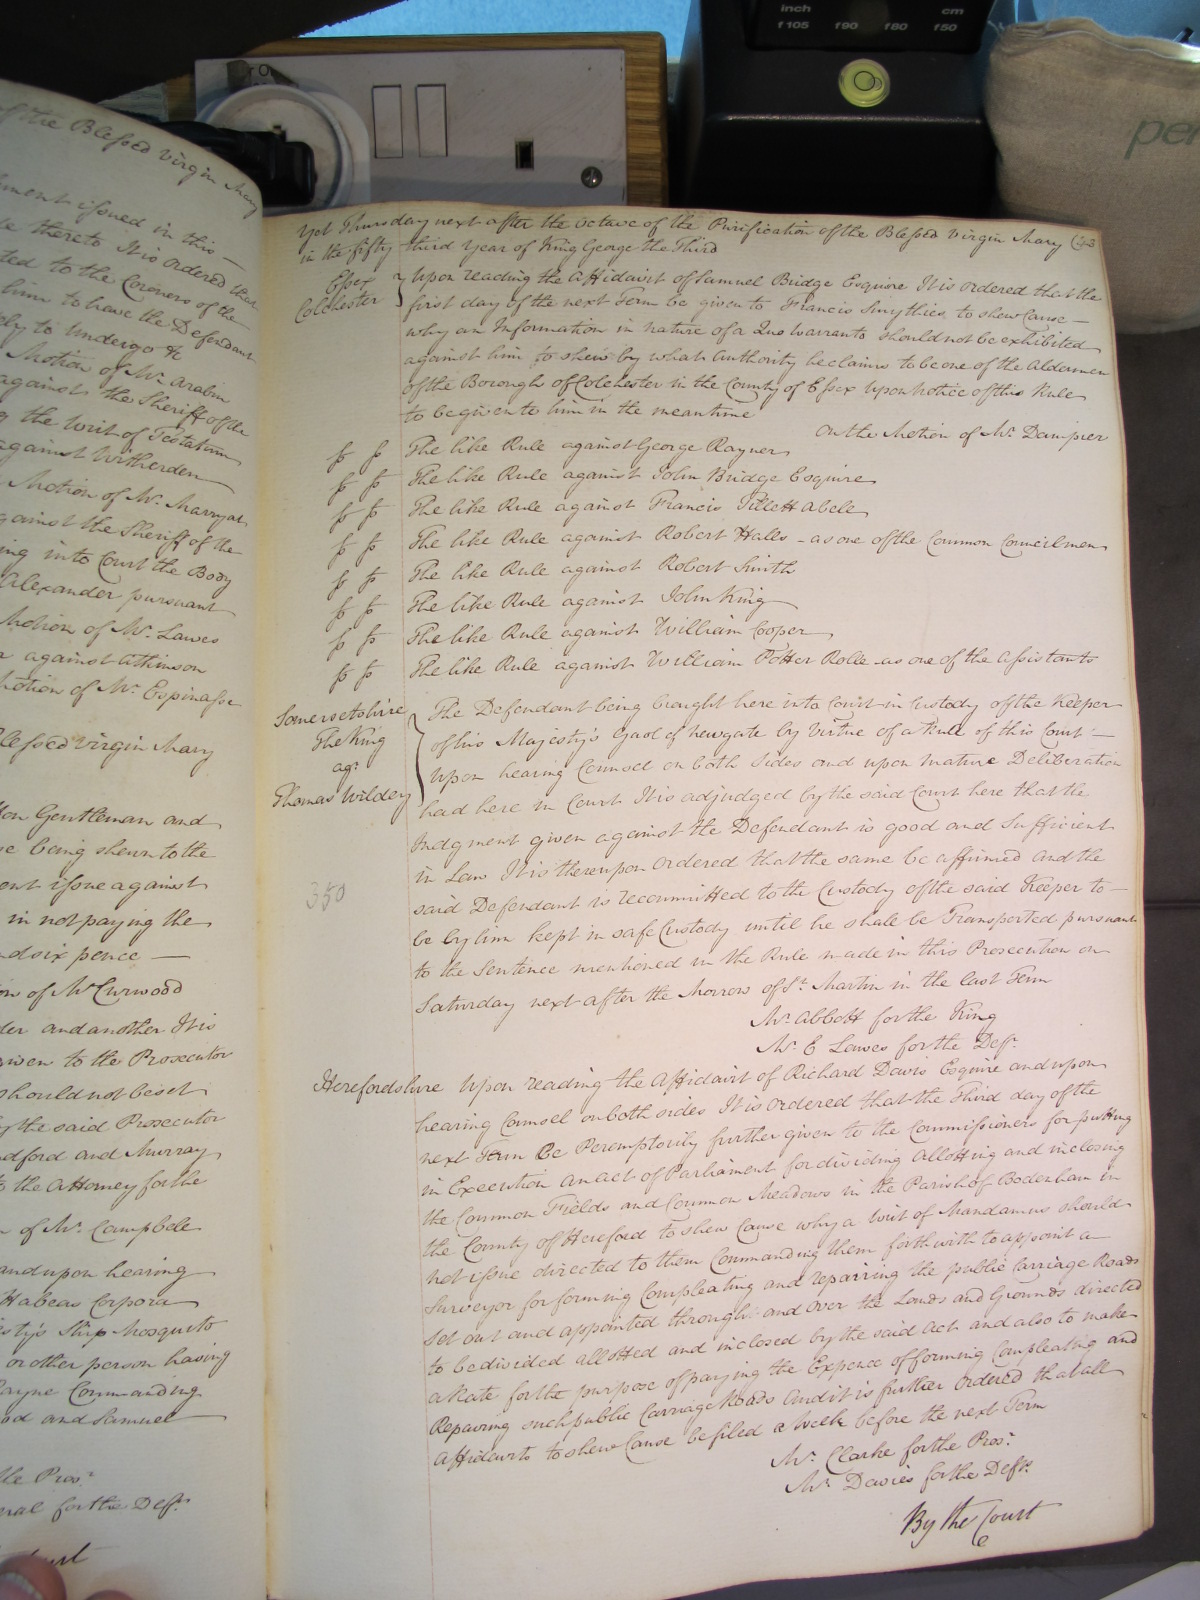 inch cm
f105 f90 f80 f50
per
of the Blessed Virgin Mary
ment issued in this —
thereto It is ordered that
ted to the Coroners of the
him to have the Defendant
to undergo &c
Motion of Mr. Arabin
against the Sheriff of the
the Writ of Testatum
against Witherden
Motion of Mr. Marryat
against the Sheriff of the
ing into Court the Body
Alexander pursuant
Motion of Mr. Lawes
against Atkinson
Motion of Mr. Espinasse
Blessed Virgin Mary
Gentleman and
being shewn to the
issue against
in not paying the
and six pence —
of Mr Curwood
and another It is
given to the Prosecutor
should not be set
the said Prosecutor
and Murray
the Attorney for the
of Mr. Campbell
and upon hearing
Habeas Corpora
Ship Mosquito
or other person having
Commanding
and Samuel
Pros.r
for the Deft.
Yet Thursday next after the Octave of the Purification of the Blessed Virgin Mary
in the fifty third Year of King George the Third
Essex } Upon reading the Affidavit of Samuel Bridge Esquire It is ordered that the
Colchester first day of the next Term be given to Francis Smythies to shew Cause —
why an Information in nature of a Quo warranto should not be exhibited
against him to shew by what Authority he claims to be one of the Aldermen
of the Borough of Colchester in the County of Essex Upon Notice of this Rule
to be given to him in the meantime
On the Motion of Mr. Dampier
The like Rule against George Rayner
The like Rule against John Bridge Esquire
The like Rule against Francis Tillett Abell
The like Rule against Robert Halls - as one of the Common Councilmen
The like Rule against Robert Smith
The like Rule against John King
The like Rule against William Cooper
The like Rule against William Potter Rolle - as one of the Assistants
Somersetshire The Defendant being brought here into Court in Custody of the Keeper
The King of his Majesty's Gaol of Newgate by Virtue of a Rule of this Court —
agt. Upon hearing Counsel on both Sides and upon mature Deliberation
Thomas Wildey had here in Court It is adjudged by the said Court here that the
Judgment given against the Defendant is good and Sufficient
in Law It is thereupon Ordered that the same be affirmed and the
350 said Defendant is recommitted to the Custody of the said Keeper to —
be by him kept in safe Custody until he shall be Transported pursuant
to the Sentence mentioned in the Rule made in this Prosecution on
Saturday next after the Morrow of St. Martin in the last Term
Mr. Abbott for the King
Mr. E Lawes for the Deft.
Herefordshire Upon reading the Affidavit of Richard Davis Esquire and upon
hearing Counsel on both sides It is Ordered that the Third day of the
next Term Be Peremptorily further given to the Commissioners for putting
in Execution an Act of Parliament for dividing allotting and inclosing
the Common Fields and Common Meadows in the Parish of Bodenham in
the County of Hereford to shew Cause why a Writ of Mandamus should
not issue directed to them Commanding them forthwith to appoint a
Surveyor for forming Compleating and repairing the public Carriage Roads
set out and appointed through and over the Lands and Grounds directed
to be divided allotted and inclosed by the said Act and also to make
a Rate for the purpose of paying the Expence of forming Compleating and
Repairing such public Carriage Roads And it is further Ordered that all
Affidavits to shew Cause be filed a Week before the next Term
Mr. Clarke for the Pros.r
Mr. Davies for the Defts.
By the Court